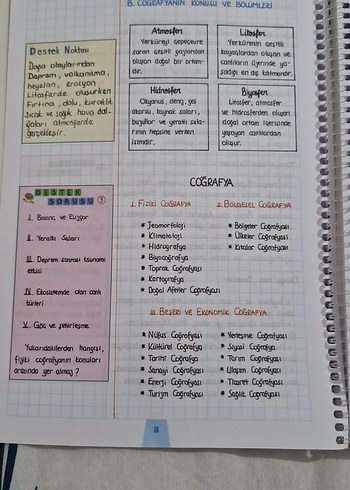 B. COĞRAFYANIN KONUSU VE BÖLÜMLERİ
Destek Noktası
Doğa olaylarından
Deprem, volkanizma,
heyelan, erozyon
Litosferde oluşurken
Fırtına, dolu, kuraklık
sıcak ve soğuk hava dal-
gaları atmosferde
gerçekleşir.
Atmosfer
Yerküreyi çepeçevre
saran çeşitli gazlardan
oluşan doğal bir ortam-
dır.
Litosfer
Yerkürenin çeşitli
kayaçlardan oluşan ve
canlıların üzerinde ya-
şadığı en dış katmandır.
Hidrosfer
Okyanus, deniz, göl
akarsu, kaynak suları,
buzullar ve yeraltı sula-
rının hepsine verilen
isimdir.
Biyosfer
Litosfer, atmosfer
ve hidrosferden oluşan
doğal ortam içerisinde
yaşayan canlılardan
oluşur.
DESTEK
SORUSU 3
I. Basınç ve Rüzgar
II. Yeraltı Suları
III. Deprem sonrası tsunami
etkisi
IV. Ekosistemde olan canlı
türleri
V. Göç ve şehirleşme
Yukarıdakilerden hangisi,
fiziki coğrafyanın konuları
arasında yer almaz?
COĞRAFYA
I. FİZİKİ COĞRAFYA
Jeomorfoloji
Klimatoloji
Hidrografya
Biyocoğrafya
Toprak Coğrafyası
Kartografya
Doğal Afetler Coğrafyası
2. BÖLGESEL COĞRAFYA
Bölgeler Coğrafyası
Ülkeler Coğrafyası
Kıtalar Coğrafyası
III. BEŞERİ VE EKONOMİK COĞRAFYA
Nüfus Coğrafyası
Kültürel Coğrafya
Tarihi Coğrafya
Sanayi Coğrafyası
Enerji Coğrafyası
Turizm Coğrafyası
Yerleşme Coğrafyası
Siyasi Coğrafya
Tarım Coğrafyası
Ulaşım Coğrafyası
Ticaret Coğrafyası
Sağlık Coğrafyası
8